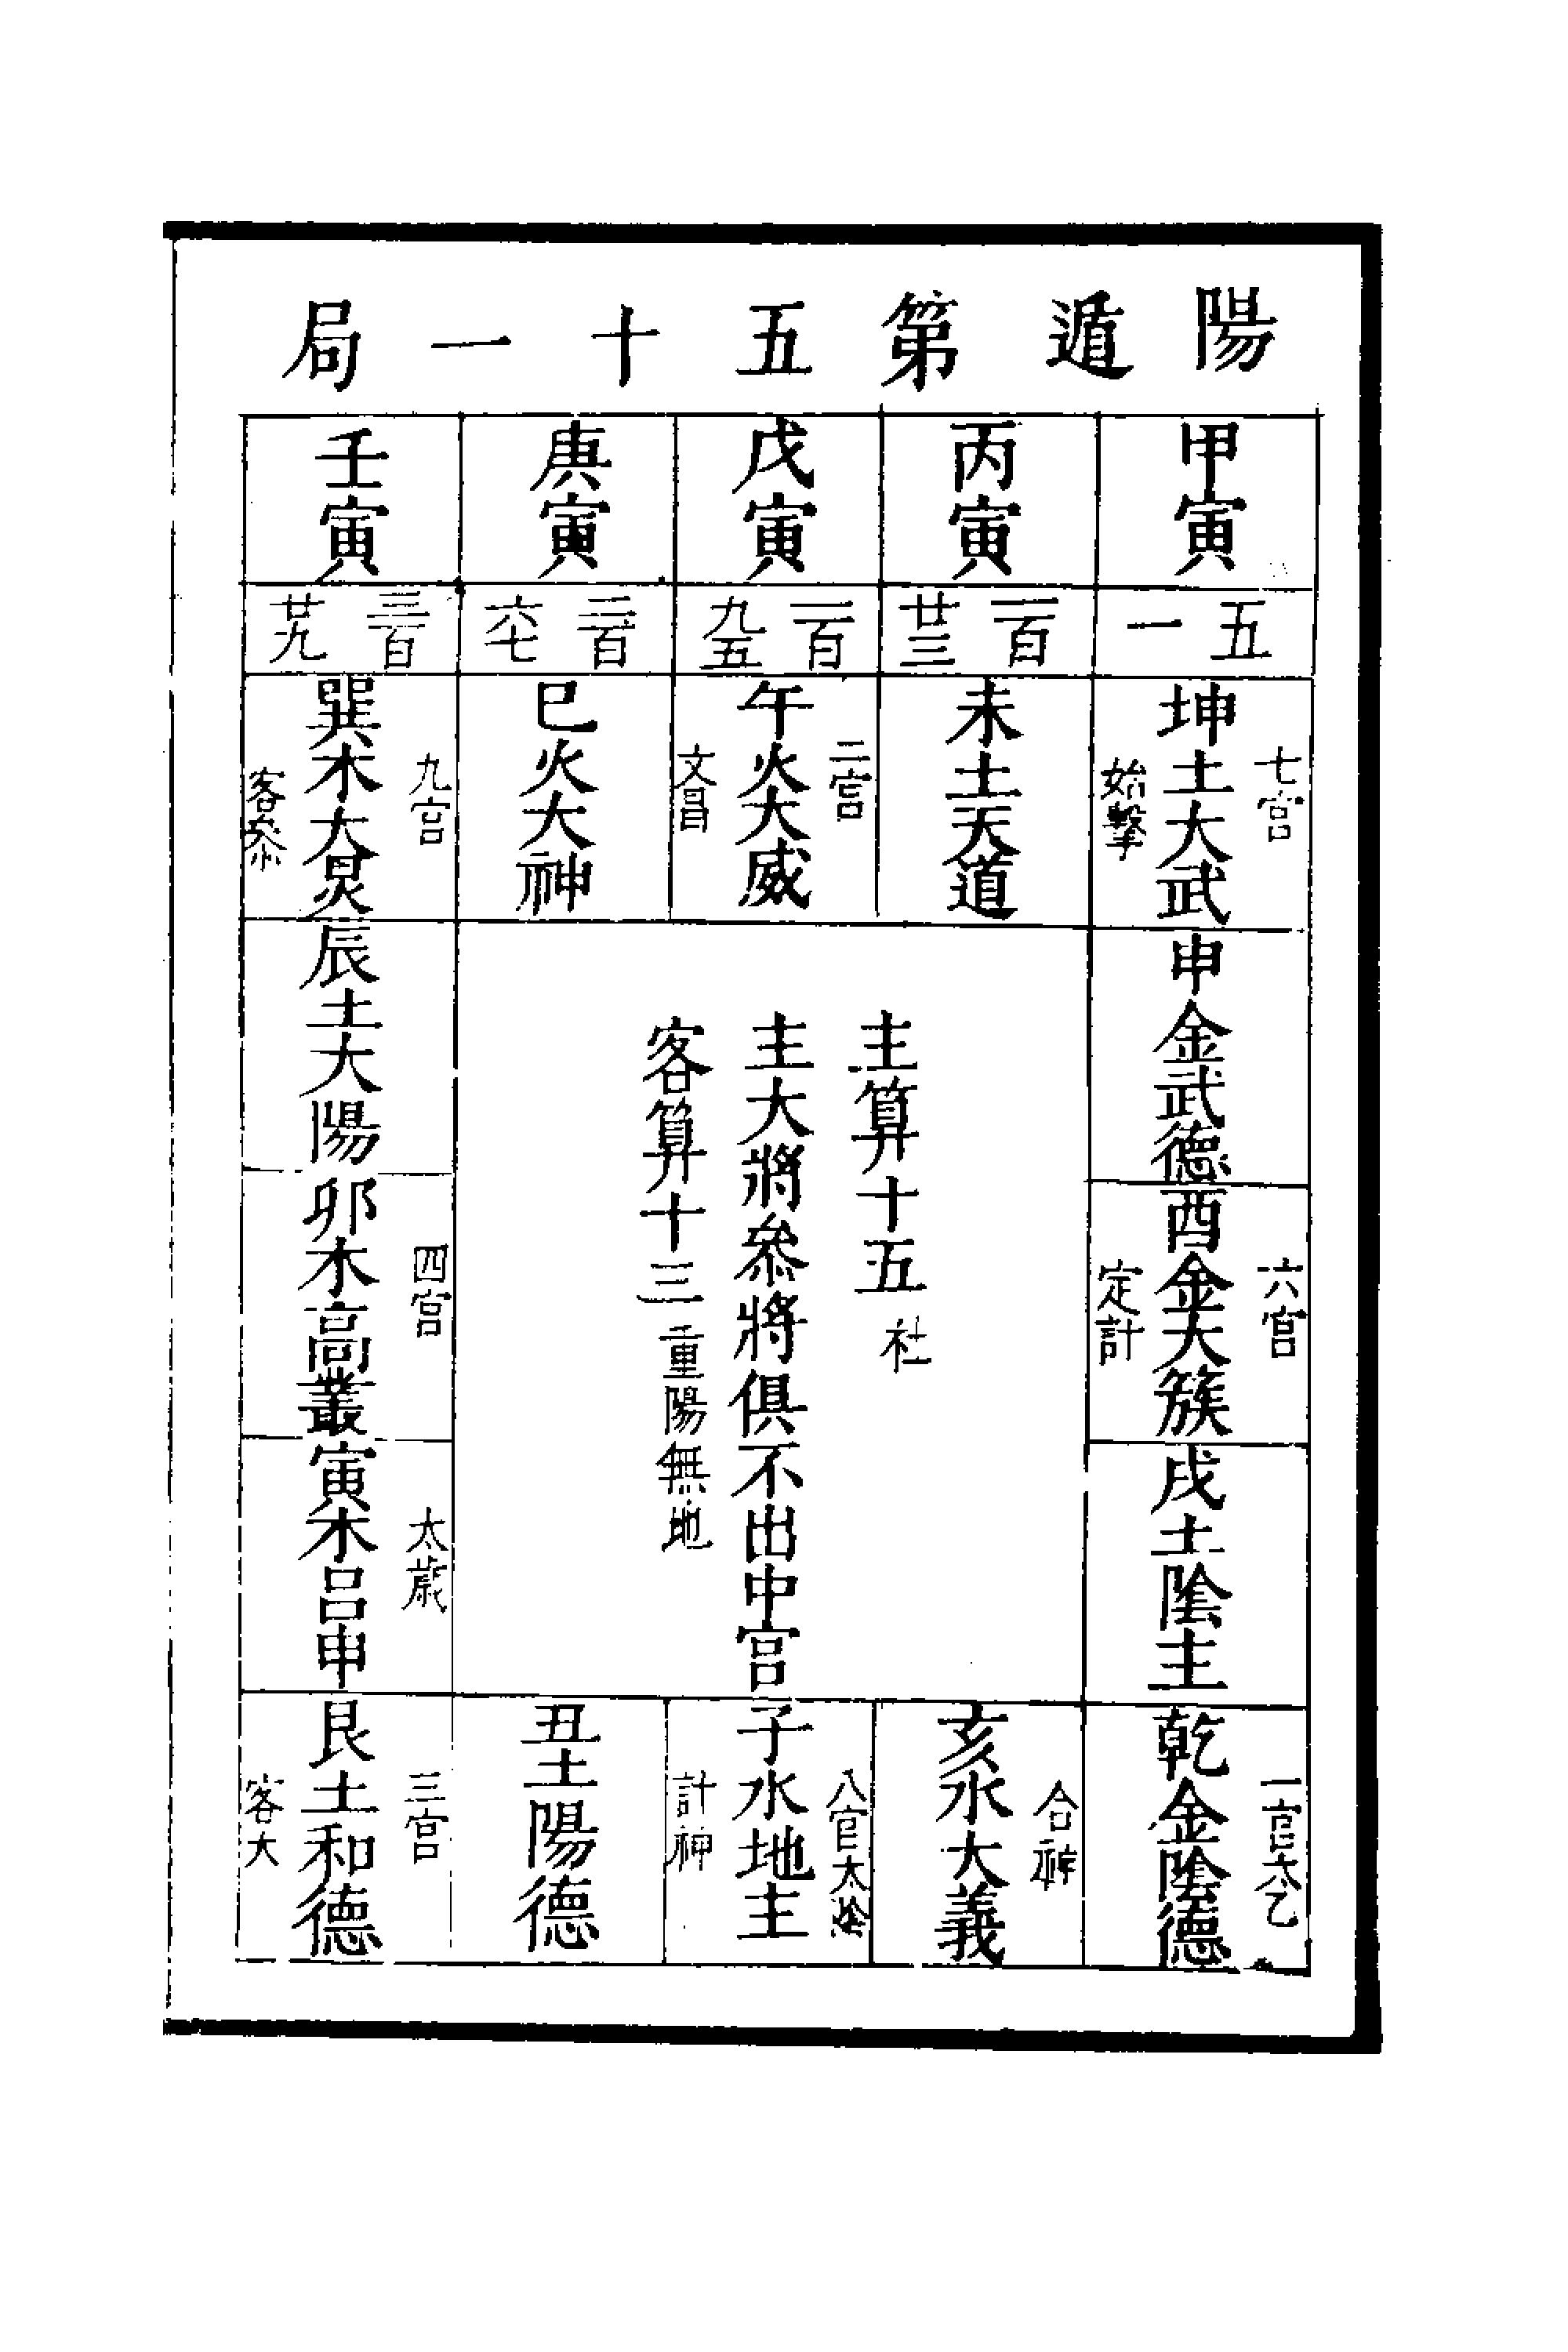 陽遁第五十一局
甲寅
丙寅
戊寅
庚寅
壬寅
五一
一百廿三
一百九五
二百六七
三百廿九
七宮
坤土大武
始擊
未土天道
二宮
午火大威
文昌
巳火大神
九宮
巽木大炅
客叅
申金武德
六宮
酉金大簇
定計
戌土陰主
辰土大陽
四宮
卯木高叢
太歲
寅木呂申
主算十五 社
主大將叅將俱不出中宮
客算十三 重陽無地
一宫太乙
乾金陰德
合神
亥水大義
八宫太陰
子水地主
計神
丑土陽德
三宮
艮土和德
客大